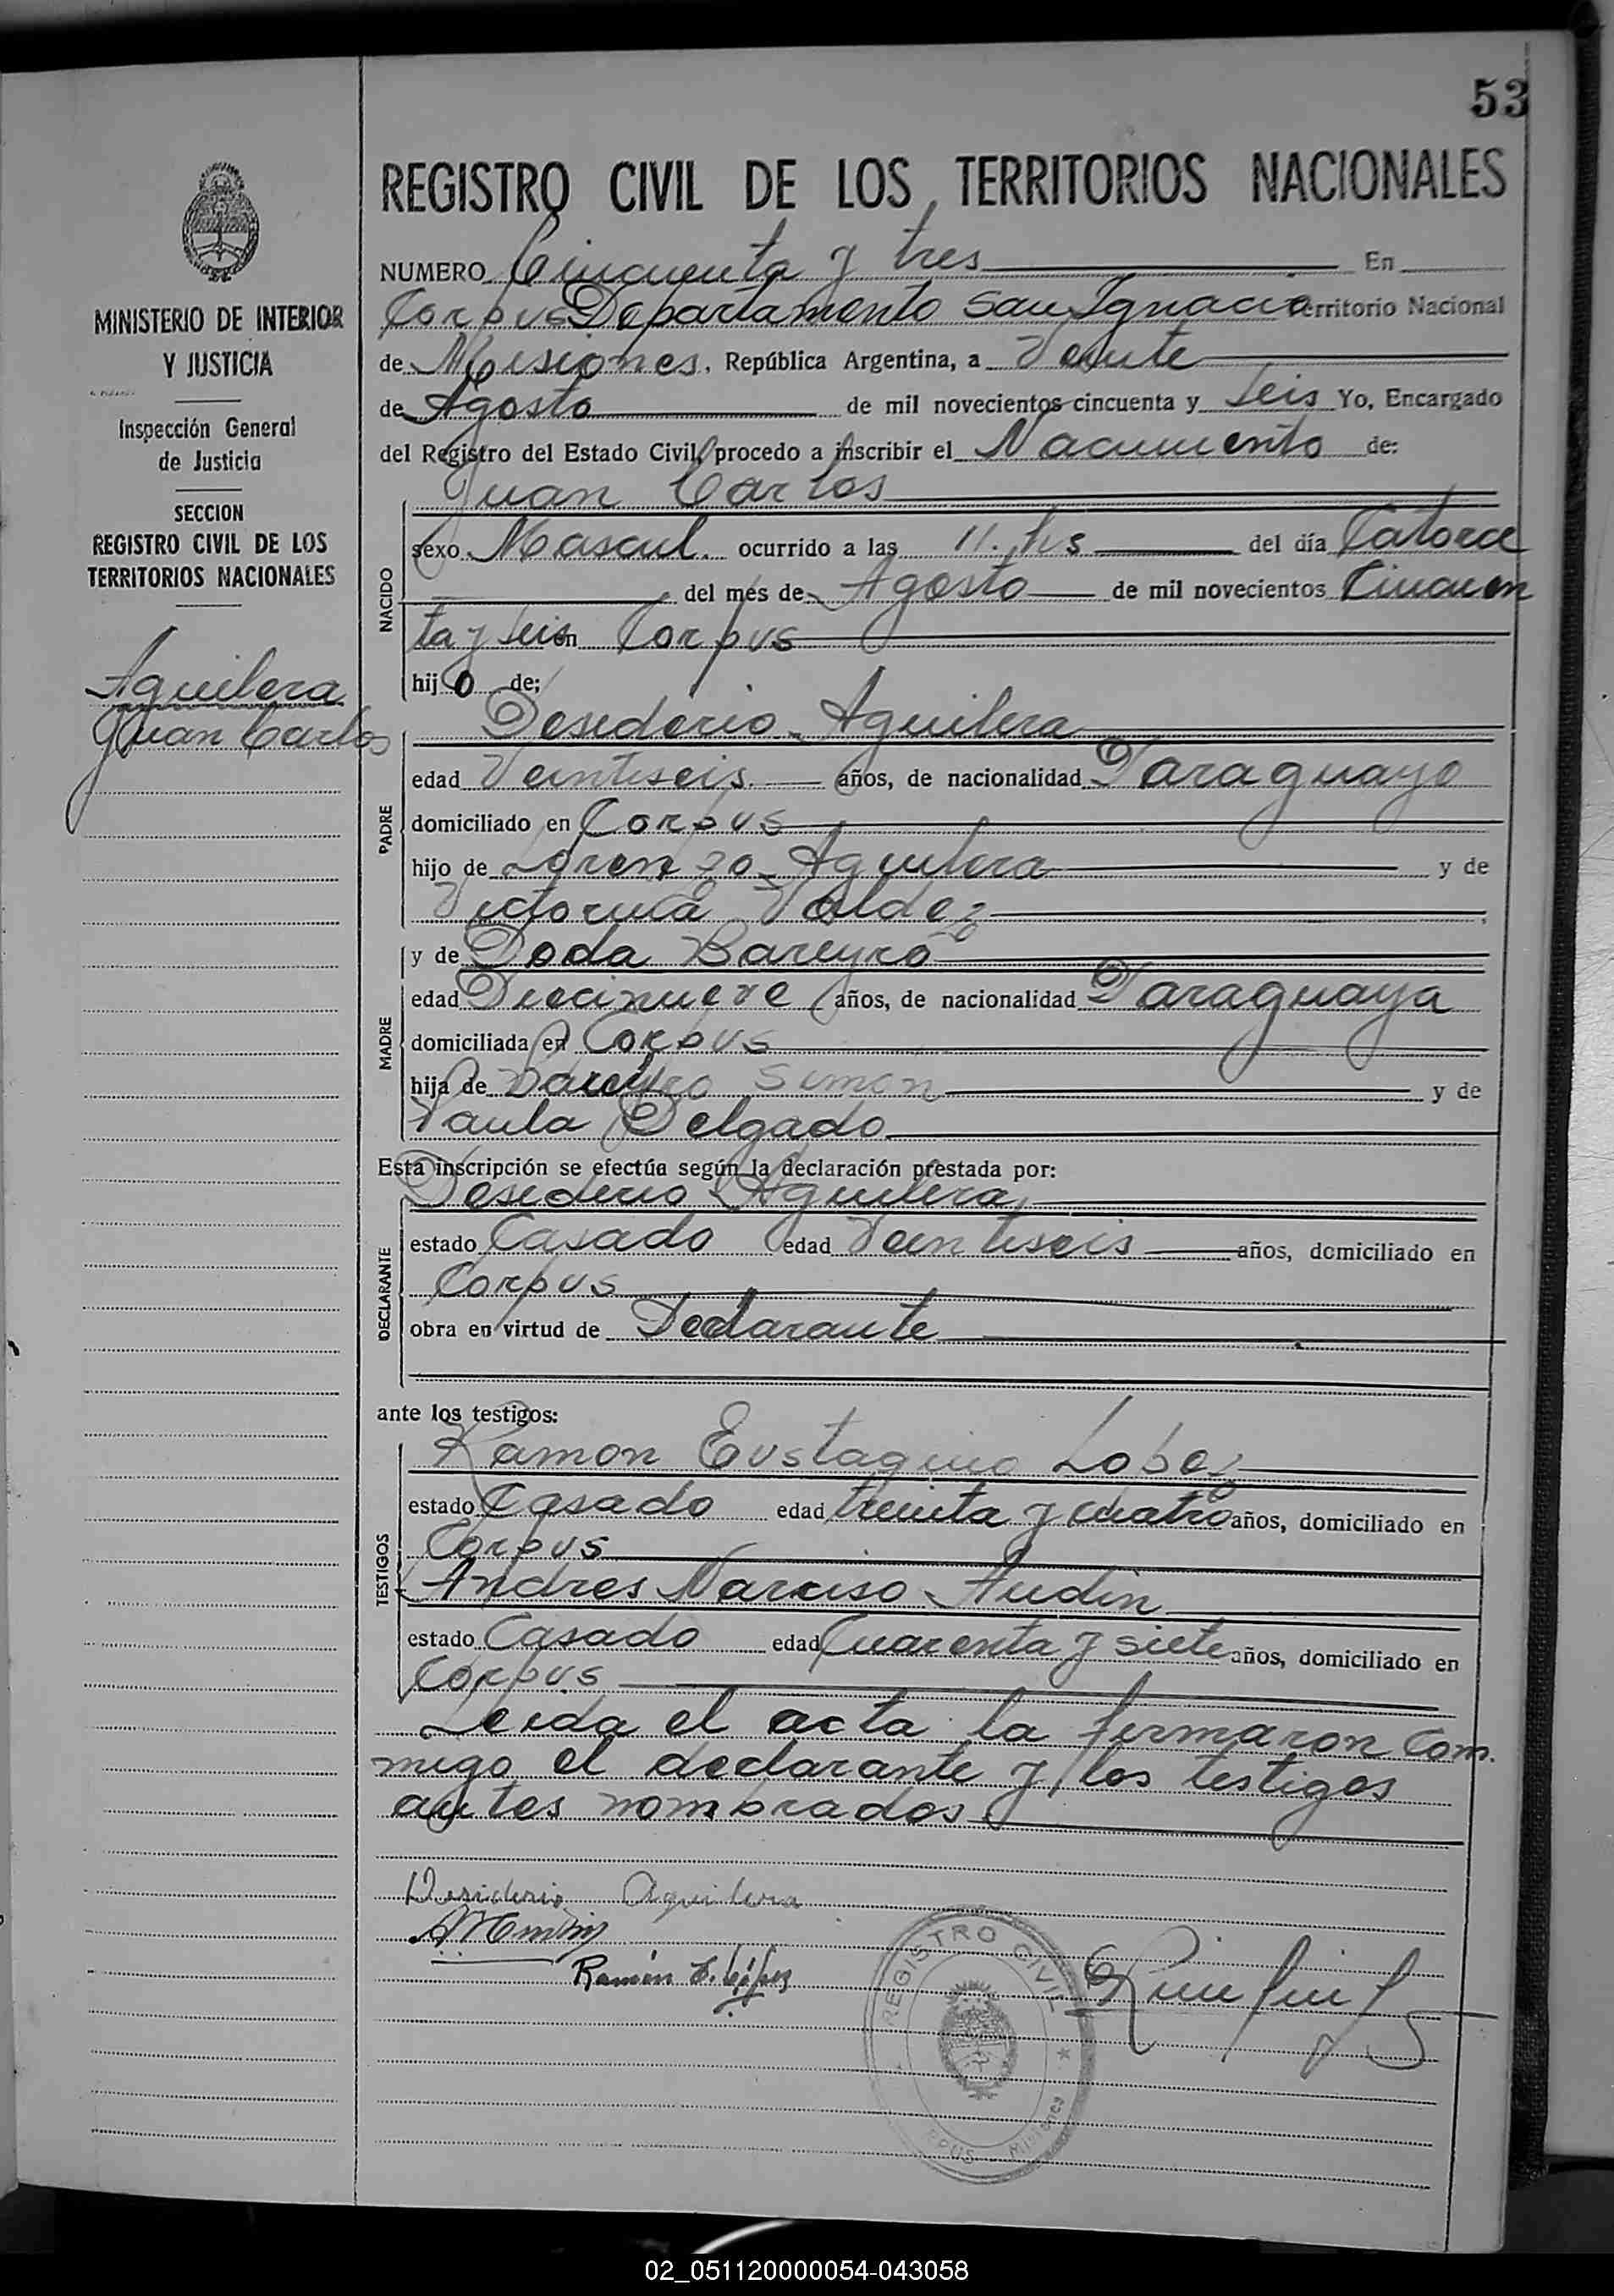 53
REGISTRO CIVIL DE LOS TERRITORIOS NACIONALES
MINISTERIO DE INTERIOR
Y JUSTICIA
Inspección General
de Justicia
SECCION
REGISTRO CIVIL DE LOS
TERRITORIOS NACIONALES
Aguilera
Juan Carlos
NUMERO Cincuenta y tres En
Corpus Departamento San Ignacio Territorio Nacional
de Misiones, República Argentina, a Veinte
de Agosto de mil novecientos cincuenta y Seis Yo, Encargado
del Registro del Estado Civil, procedo a inscribir el Nacimiento de:
Juan Carlos
NACIDO
sexo Mascul. ocurrido a las 11. hs del día Catorce
del mes de Agosto de mil novecientos Cincuen
ta y seis en Corpus
hijo de;
Desederio Aguilera
PADRE
edad Veintiseis. años, de nacionalidad Paraguayo
domiciliado en Corpus
hijo de Lorenzo Aguilera y de
Victorina Valdez
MADRE
y de Doda Bareyro
edad Diecinueve años, de nacionalidad Paraguaya
domiciliada en Corpus
hija de Bareyro Simon y de
Paula Delgado
Esta inscripción se efectúa según la declaración prestada por:
Desederio Aguilera,
DECLARANTE
estado Casado edad Veintiseis años, domiciliado en
Corpus
obra en virtud de Declarante
ante los testigos:
TESTIGOS
Ramon Eustaquio Lopez
estado Casado edad treinta y cuatro años, domiciliado en
Corpus
Andres Narciso Audin
estado Casado edad Cuarenta y siete años, domiciliado en
Corpus
Leida el acta la firmaron con.
migo el declarante y los testigos
antes nombrados
Desiderio Aguilera
Ramón E. López
REGISTRO CIVIL
CORPUS - Misiones
02_051120000054-043058